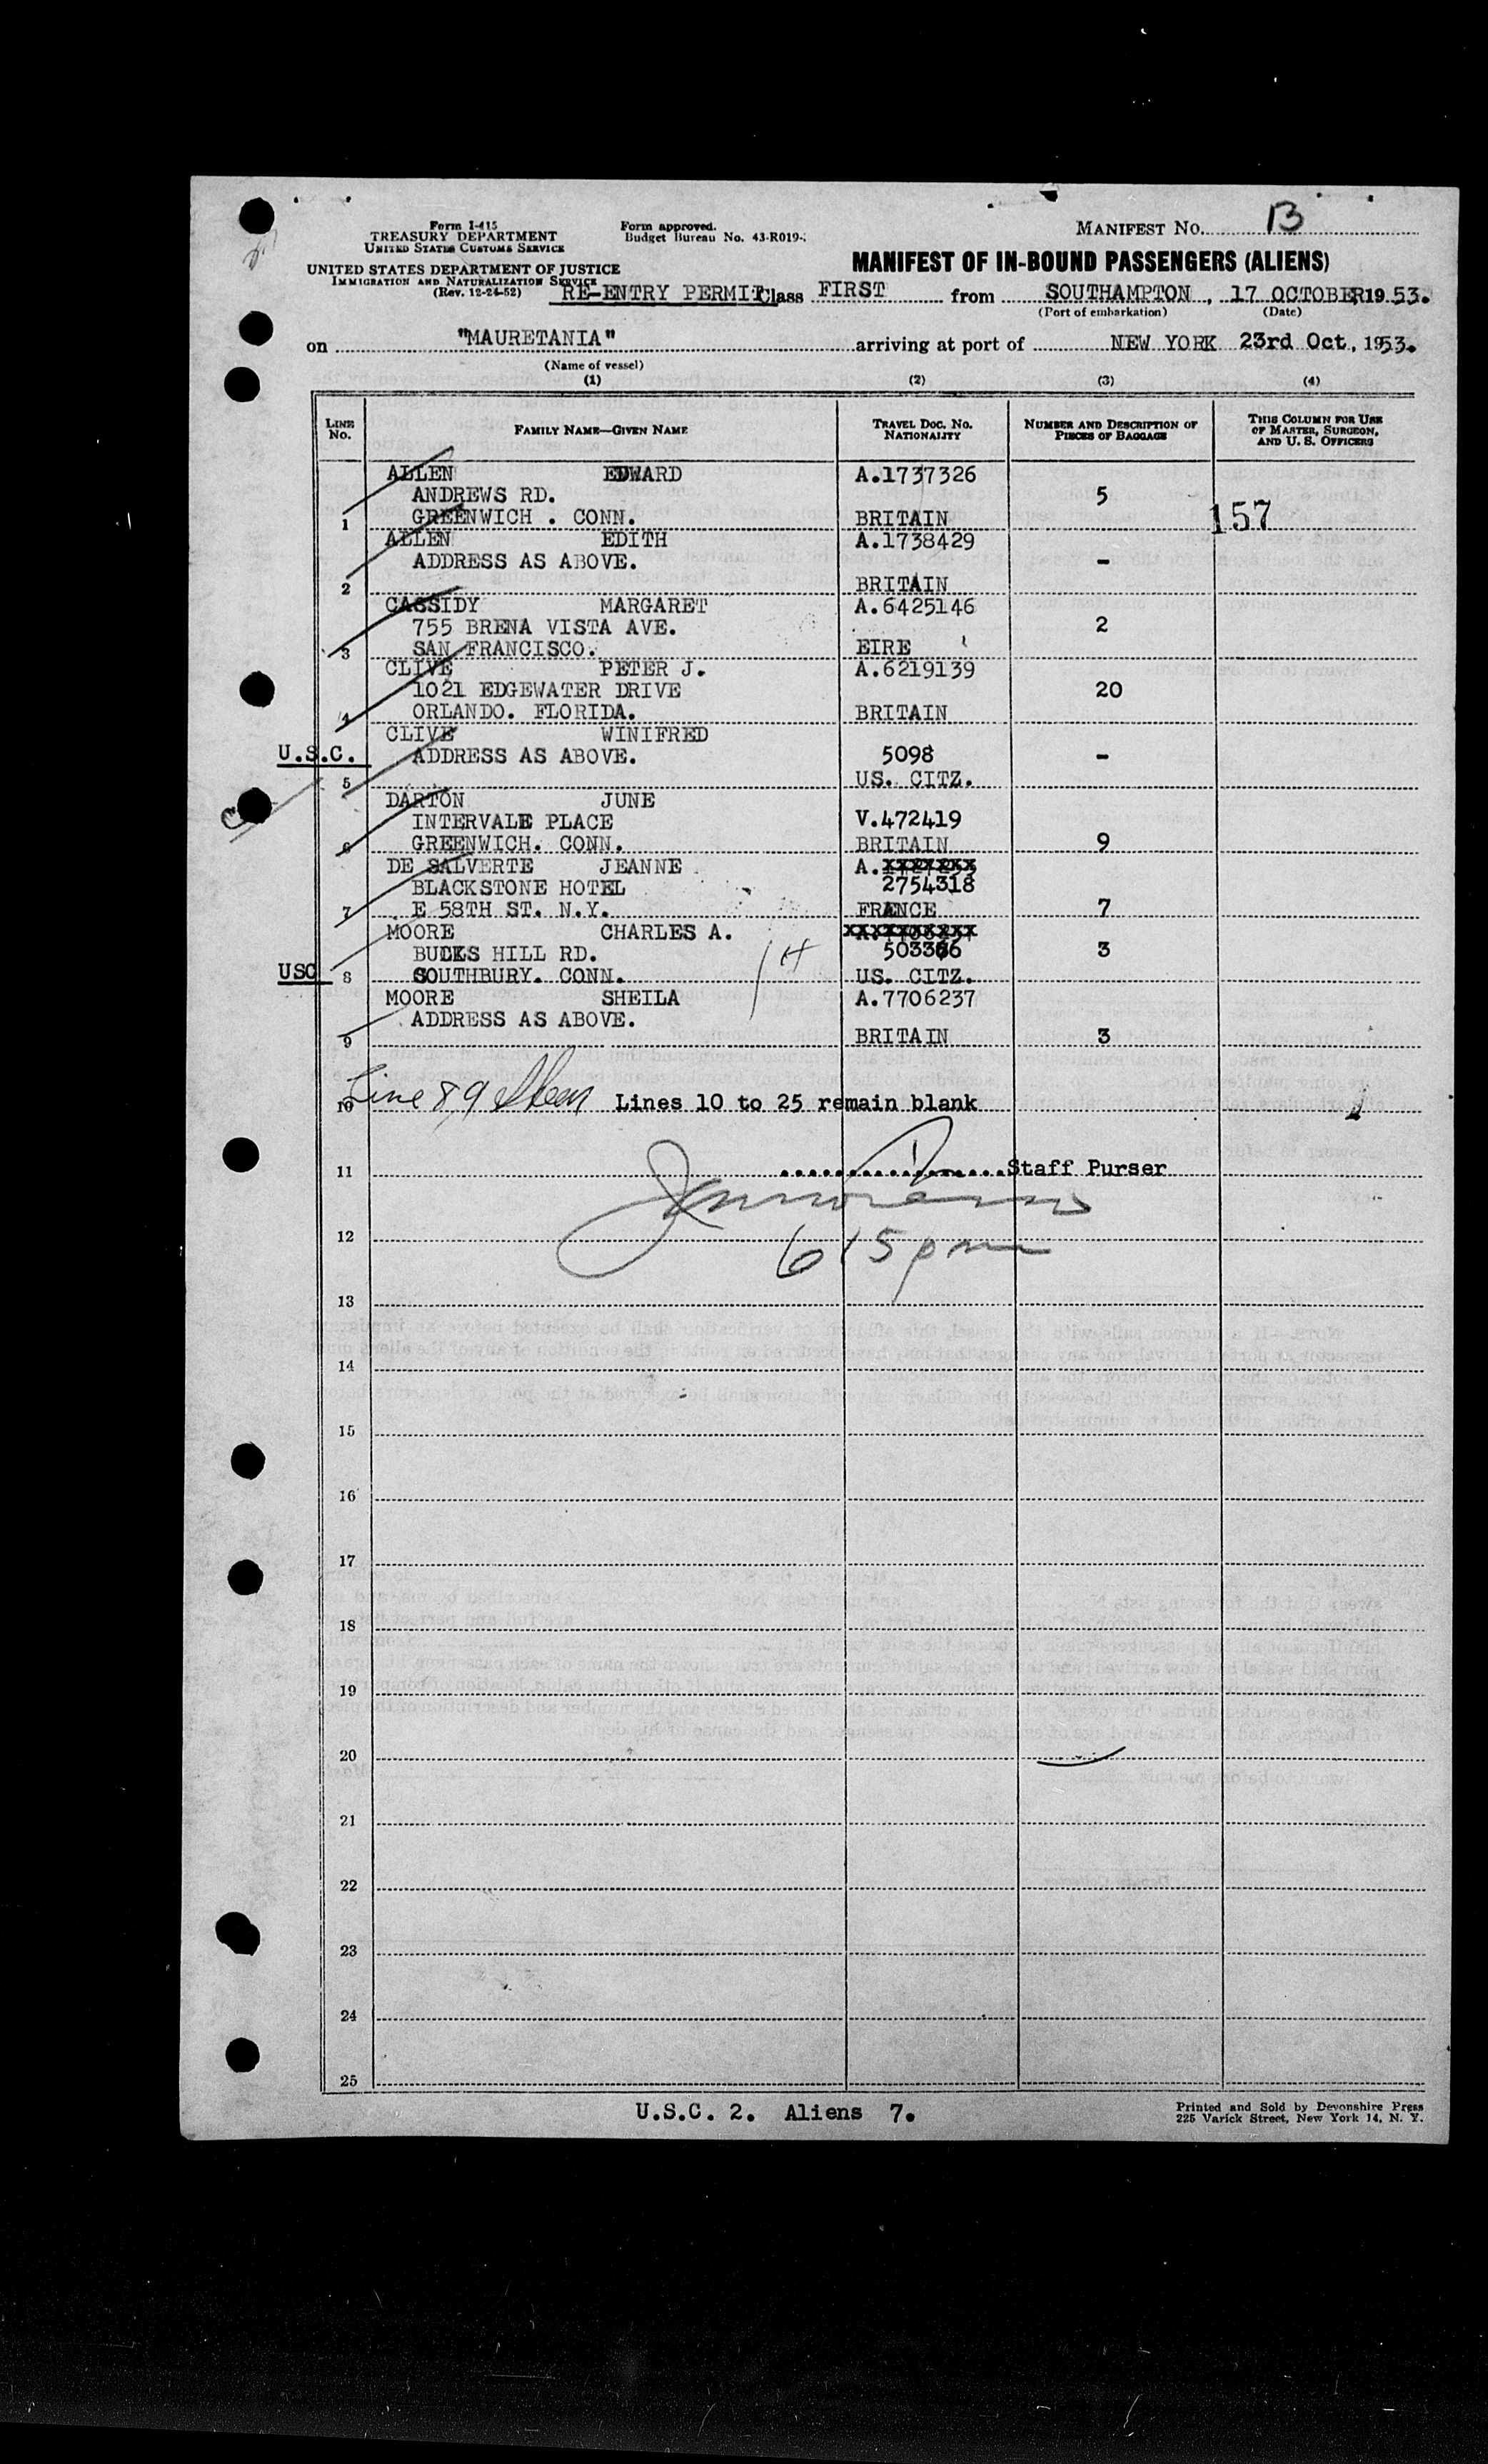 Form I-415
TREASURY DEPARTMENT
UNITED STATES CUSTOMS SERVICE
Form approved.
Budget Bureau No. 43-R019-
MANIFEST NO. B
UNITED STATES DEPARTMENT OF JUSTICE
IMMIGRATION AND NATURALIZATION SERVICE
(Rev. 12-24-52)
MANIFEST OF IN-BOUND PASSENGERS (ALIENS)
RE-ENTRY PERMIT Class FIRST from SOUTHAMPTON, 17 OCTOBER, 1953.
(Port of embarkation) (Date)
on "MAURETANIA" arriving at port of NEW YORK 23rd Oct., 1953.
(Name of vessel)
(1) (2) (3) (4)
LINE NO. FAMILY NAME—GIVEN NAME TRAVEL DOC. NO. NATIONALITY NUMBER AND DESCRIPTION OF PIECES OF BAGGAGE THIS COLUMN FOR USE OF MASTER, SURGEON, AND U. S. OFFICERS
ALLEN EDWARD A.1737326
ANDREWS RD. 5
1 GREENWICH . CONN. BRITAIN 157
ALLEN EDITH A.1738429
ADDRESS AS ABOVE. -
2 BRITAIN
CASSIDY MARGARET A.6425146
755 BRENA VISTA AVE. 2
3 SAN FRANCISCO. EIRE
CLIVE PETER J. A.6219139
1021 EDGEWATER DRIVE 20
4 ORLANDO. FLORIDA. BRITAIN
CLIVE WINIFRED
U.S.C. ADDRESS AS ABOVE. 5098 -
5 US. CITZ.
DARTON JUNE
INTERVALE PLACE V.472419
6 GREENWICH. CONN. BRITAIN 9
DE SALVERTE JEANNE A.
BLACKSTONE HOTEL 2754318
7 E 58TH ST. N.Y. FRANCE 7
MOORE CHARLES A.
BUCKS HILL RD. 3
USC 8 SOUTHBURY. CONN. US. CITZ.
MOORE SHEILA A.7706237
ADDRESS AS ABOVE.
9 BRITAIN 3
10 Line 8 9 Lines 10 to 25 remain blank
11 Staff Purser
12 615 pm
13
14
15
16
17
18
19
20
21
22
23
24
25
U.S.C. 2. Aliens 7.
Printed and Sold by Devonshire Press
225 Varick Street, New York 14, N. Y.